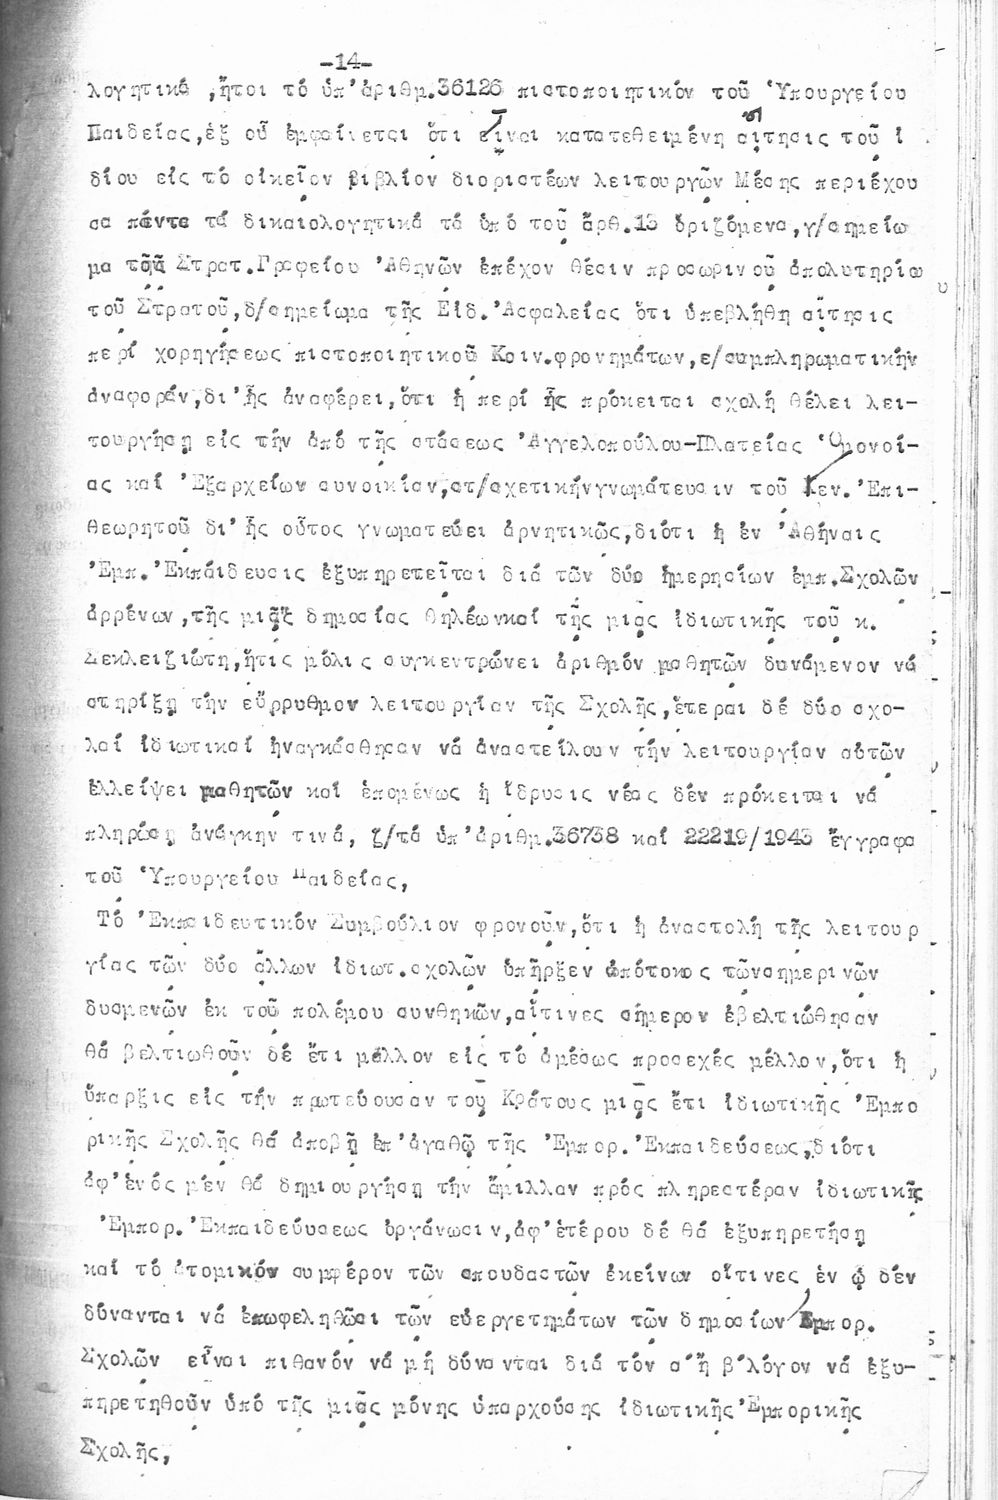 -14-
λογητικά ,ἤτοι τό ὑπ'ἀριθμ.36126 πιστοποιητικόν τοῦ Ὑπουργείου
Παιδείας,ἐξ οὗ ἐμφαίνεται ὅτι εἶναι κατατεθειμένη αἴτησις τοῦ ἰ
δίου εἰς τό οἰκεῖον βιβλίον διοριστέων λειτουργῶν Μέσης περιέχου
σα πάντα τά δικαιολογητικά τά ὑπό τοῦ ἄρθ.13 ὁριζόμενα,γ/σημείω
μα τοῦ Στρατ.Γραφείου Ἀθηνῶν ἐπέχον θέσιν προσωρινοῦ ἀπολυτηρίου
τοῦ Στρατοῦ,δ/σημείωμα τῆς Εἰδ.Ἀσφαλείας ὅτι ὑπεβλήθη αἴτησις
περί χορηγήσεως πιστοποιητικοῦ Κοιν.φρονημάτων,ε/συμπληρωματικήν
ἀναφοράν,δι'ἧς ἀναφέρει,ὅτι ἡ περί ἧς πρόκειται σχολή θέλει λει-
τουργήσῃ εἰς τήν ἀπό τῆς στάσεως Ἀγγελοπούλου-Πλατείας Ὁμονοί-
ας καί Ἐξαρχείων συνοικίαν,στ/σχετικήνγνωμάτευσιν τοῦ Γεν.Ἐπι-
θεωρητοῦ δι'ἧς οὗτος γνωματεύει ἀρνητικῶς,διότι ἡ ἐν Ἀθήναις
Ἐμπ.Ἐκπάιδευσις ἐξυπηρετεῖται διά τῶν δύο ἡμερησίων ἐμπ.Σχολῶν
ἀρρένων,τῆς μιᾶς δημοσίας θηλέωνκαί τῆς μιᾶς ἰδιωτικῆς τοῦ κ.
Δεκλειζιώτη,ἥτις μόλις συγκεντρώνει ἀριθμόν μαθητῶν δυνάμενον νά
στηρίξῃ τήν εὔρρυθμον λειτουργίαν τῆς Σχολῆς,ἕτεραι δέ δύο σχο-
λαί ἰδιωτικαί ἠναγκάσθησαν νά ἀναστείλουν τήν λειτουργίαν αὐτῶν
ἐλλείψει μαθητῶν καί ἑπομένως ἡ ἵδρυσις νέας δέν πρόκειται νά
πληρώσῃ ἀνάγκην τινά, ζ/τά ὑπ'ἀριθμ.36738 καί 22219/1943 ἔγγραφα
τοῦ Ὑπουργείου Παιδείας,
Τό Ἐκπαιδευτικόν Συμβούλιον φρονοῦν,ὅτι ἡ ἀναστολή τῆς λειτουρ
γίας τῶν δύο ἄλλων ἰδιωτ.σχολῶν ὑπῆρξεν ἀπότοκος τῶνσημερινῶν
δυσμενῶν ἐκ τοῦ πολέμου συνθηκῶν,αἵτινες σήμερον ἐβελτιώθησαν
θά βελτιωθοῦν δέ ἔτι μᾶλλον εἰς τό ἀμέσως προσεχές μέλλον,ὅτι ἡ
ὕπαρξις εἰς τήν πρωτεύουσαν τοῦ Κράτους μιᾶς ἔτι ἰδιωτικῆς Ἐμπο
ρικῆς Σχολῆς θά ἀποβῇ ἐπ'ἀγαθῷ τῆς Ἐμπορ.Ἐκπαιδεύσεως,διότι
ἀφ'ἑνός μέν θά δημιουργήσῃ τήν ἅμιλλαν πρός πληρεστέραν ἰδιωτικῆς
Ἐμπορ.Ἐκπαιδεύυσεως ὀργάνωσιν,ἀφ'ἑτέρου δέ θά ἐξυπηρετήσῃ
καί τό ἀτομικόν συμφέρον τῶν σπουδαστῶν ἐκείνων οἵτινες ἐν ᾧ δέν
δύνανται νά ἐπωφεληθῶσι τῶν εὐεργετημάτων τῶν δημοσίων Ἐμπορ.
Σχολῶν εἶναι πιθανόν νά μή δύνανται διά τόν α'ἤ β'λόγον νά ἐξυ-
πηρετηθοῦν ὑπό τῆς μιᾶς μόνης ὑπαρχούσης ἰδιωτικῆς Ἐμπορικῆς
Σχολῆς,